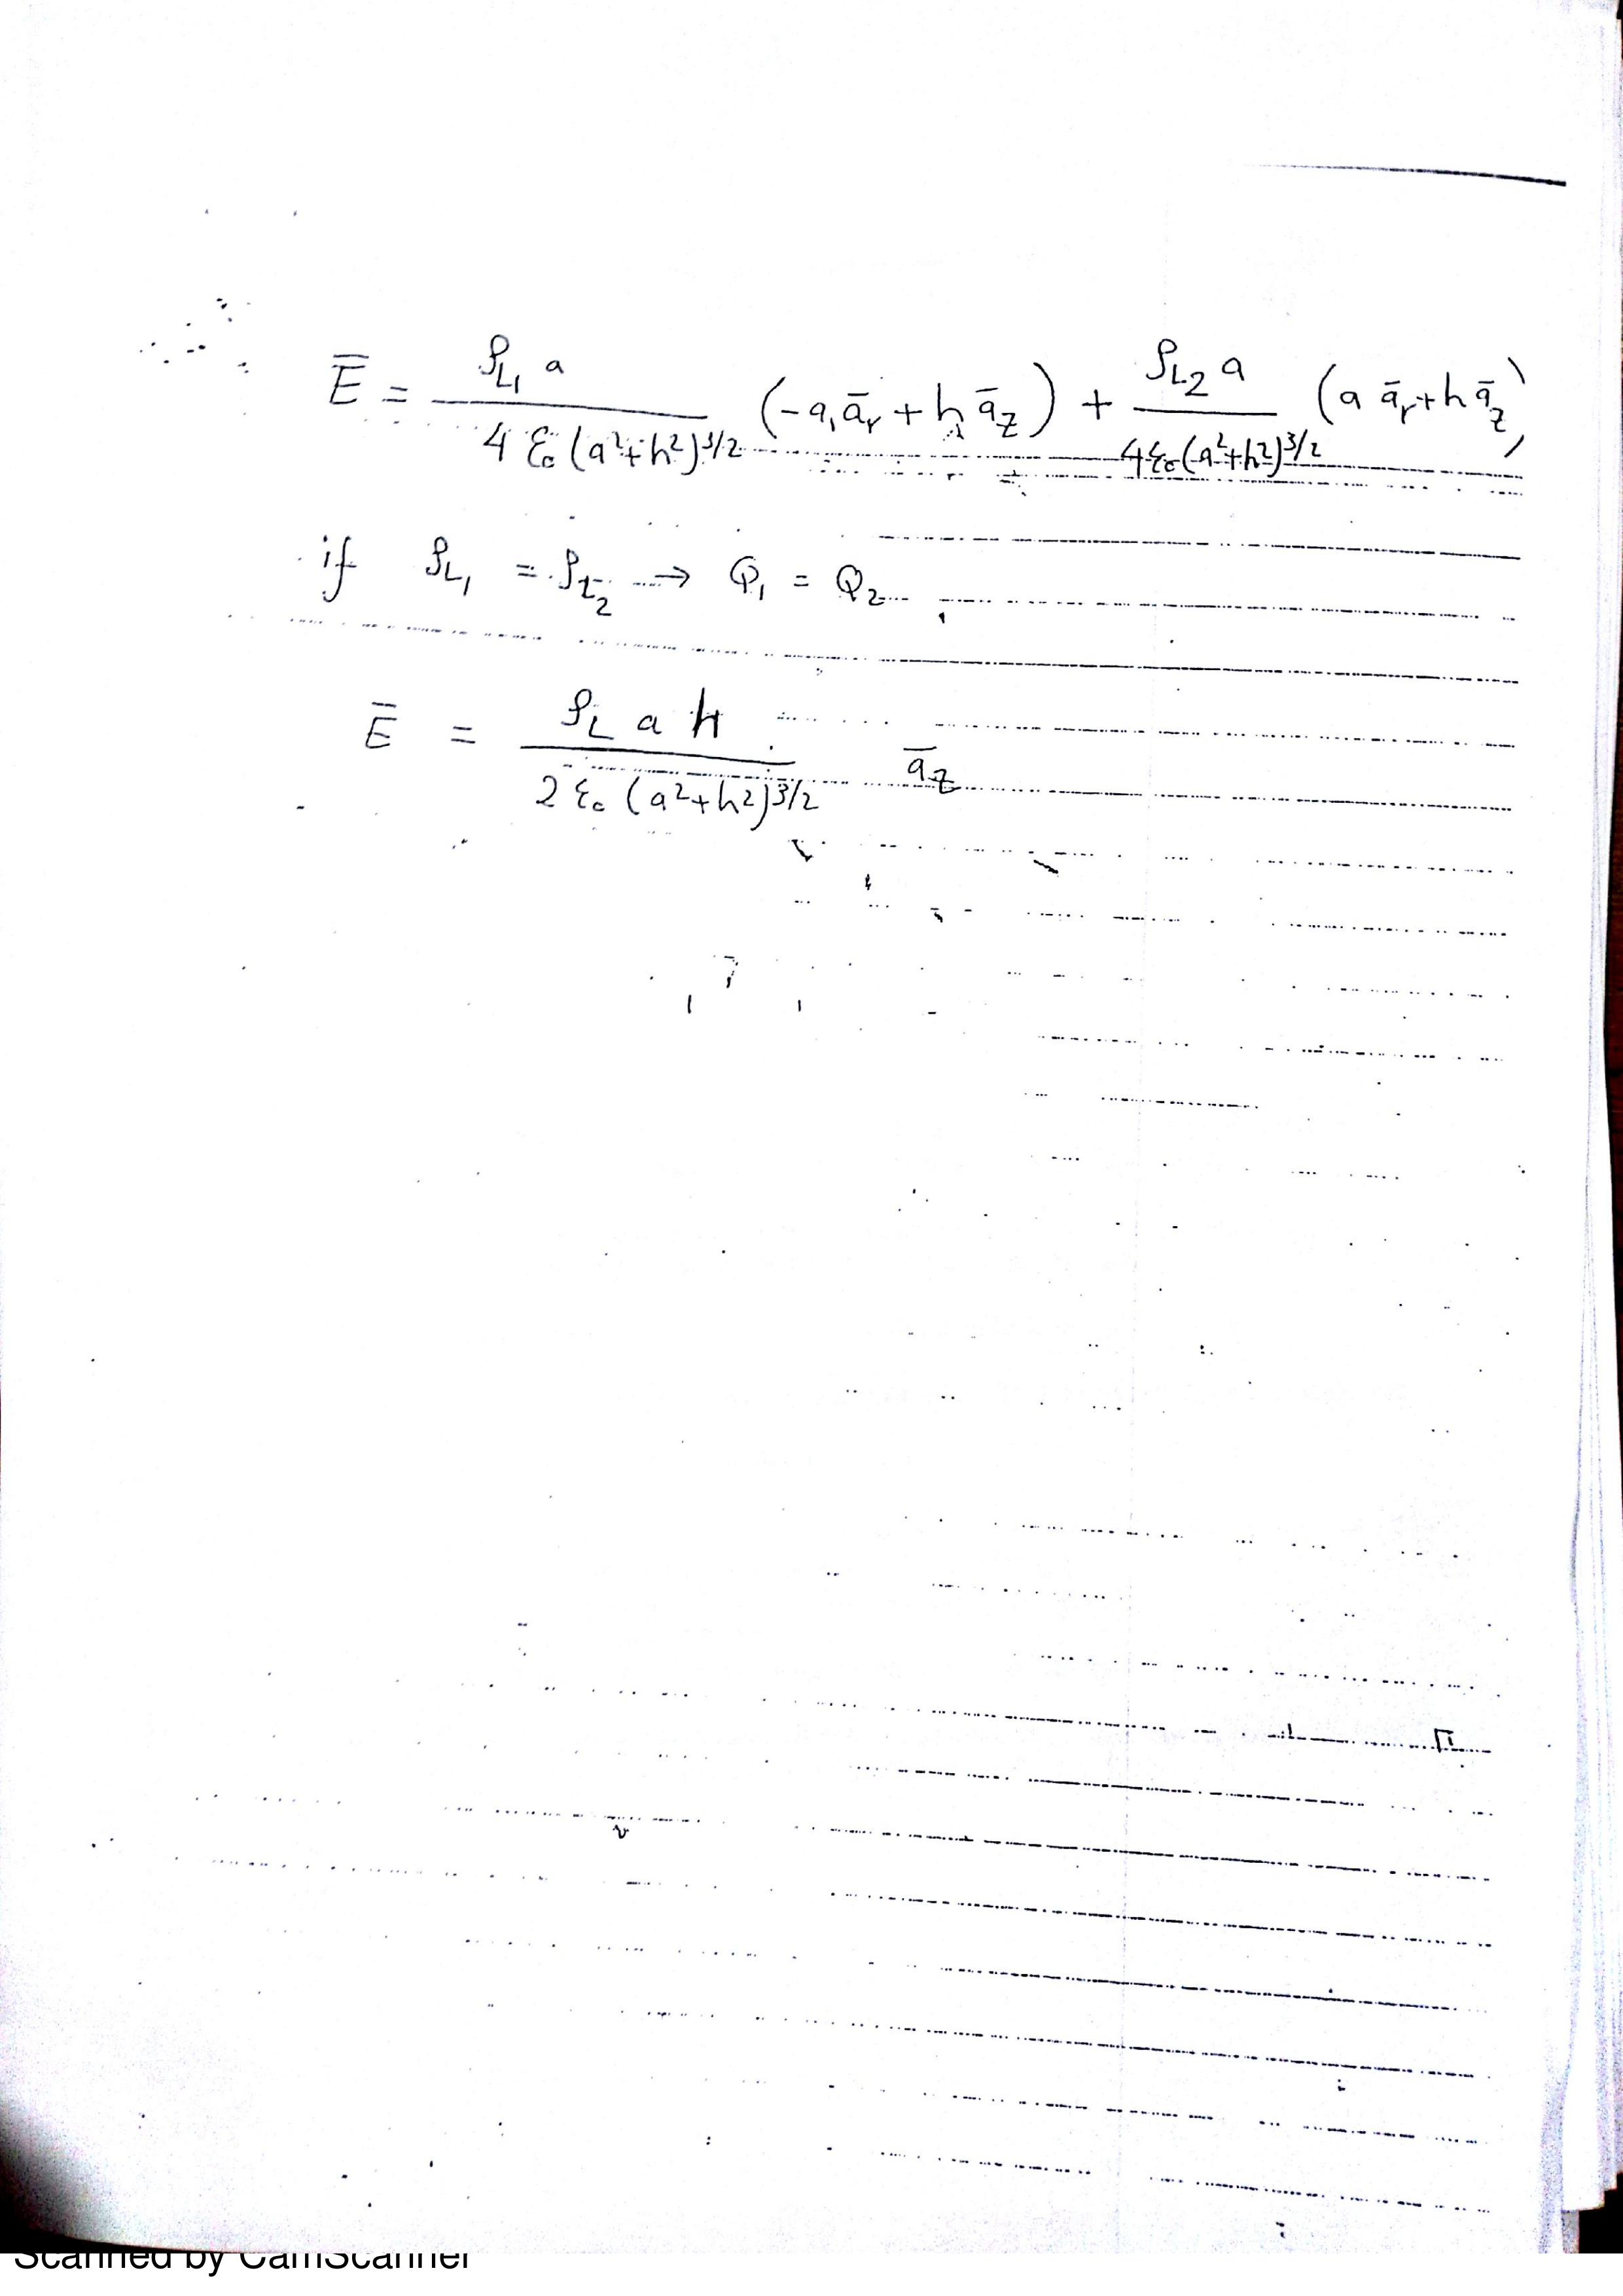 Ē = ρL₁ a / 4 ε₀ (a²+h²)^3/2 (-a, ār + h āz) + ρL2 a / 4 ε₀ (a²+h²)^3/2 (a ār + h āz)
if ρL₁ = ρL₂ → Q₁ = Q₂
Ē = ρL a h / 2 ε₀ (a²+h²)^3/2 āz
Scanned by CamScanner